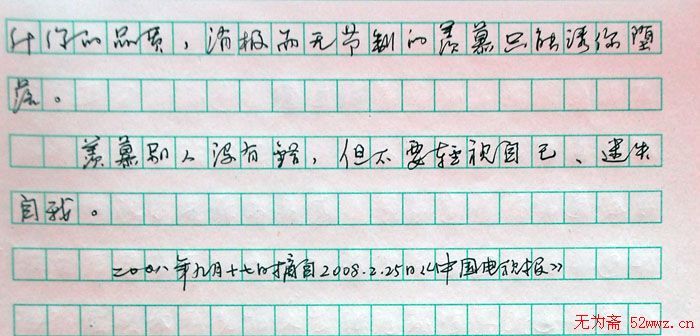 升你的品质，消极而无节制的羡慕只能诱你堕
落。
羡慕别人没有错，但不要轻视自己、迷失
自我。
二〇〇八年九月十七日摘自2008.2.25日《中国电视报》
无为斋 52wwz.cn